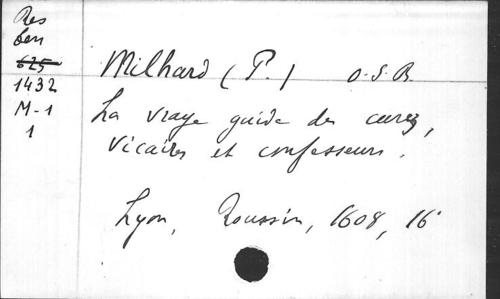 Res
ben
625
1432
M-1
1
Milhard (P.) O.S.B.
La vraye guide des curez,
vicaires et confesseurs.
Lyon, Roussin, 1608, 16°